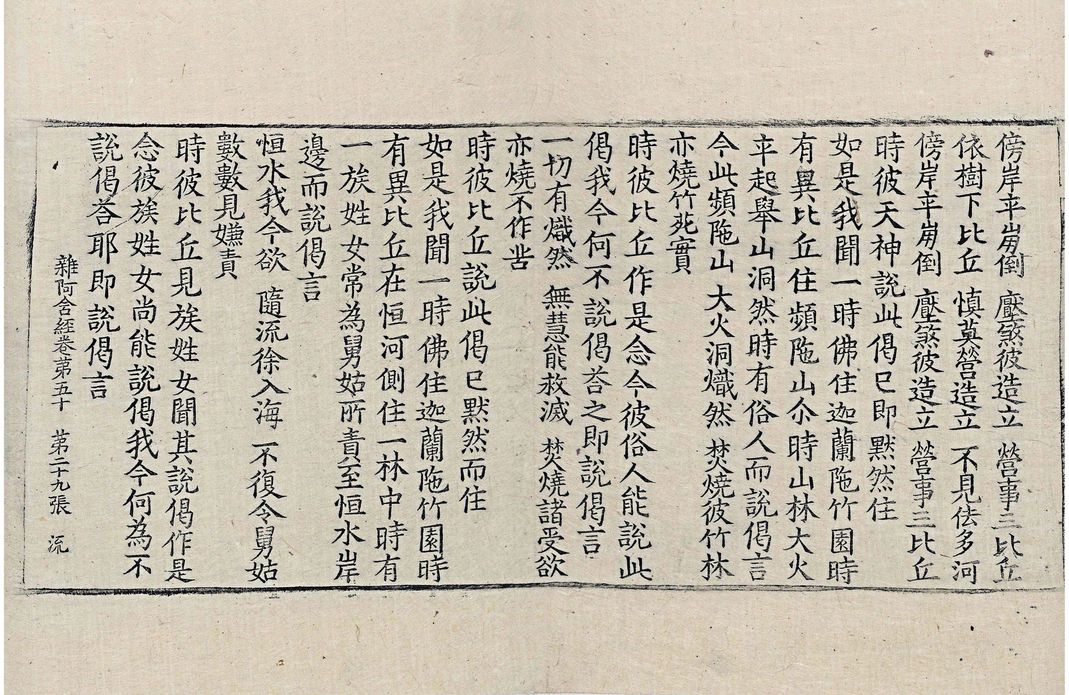 傍岸卒崩倒　壓煞彼造立　營事三比丘
依樹下比丘　慎莫營造立　不見佉多河
傍岸卒崩倒　壓煞彼造立　營事三比丘
時彼天神說此偈已即默然住
如是我聞一時佛住迦蘭陁竹園時
有異比丘住頻陁山尒時山林大火
卒起舉山洞然時有俗人而說偈言
今此頻陁山　大火洞熾然　焚燒彼竹林
亦燒竹菀實
時彼比丘作是念今彼俗人能說此
偈我今何不說偈荅之即說偈言
一切有熾然　無慧能救滅　焚燒諸受欲
亦燒不作苦
時彼比丘說此偈已默然而住
如是我聞一時佛住迦蘭陁竹園時
有異比丘在恒河側住一林中時有
一族姓女常為舅姑所責至恒水岸
邊而說偈言
恒水我今欲　隨流徐入海　不復令舅姑
數數見嫌責
時彼比丘見族姓女聞其說偈作是
念彼族姓女尚能說偈我今何為不
說偈荅耶即說偈言
雜阿含經卷第五十　第二十九張　流